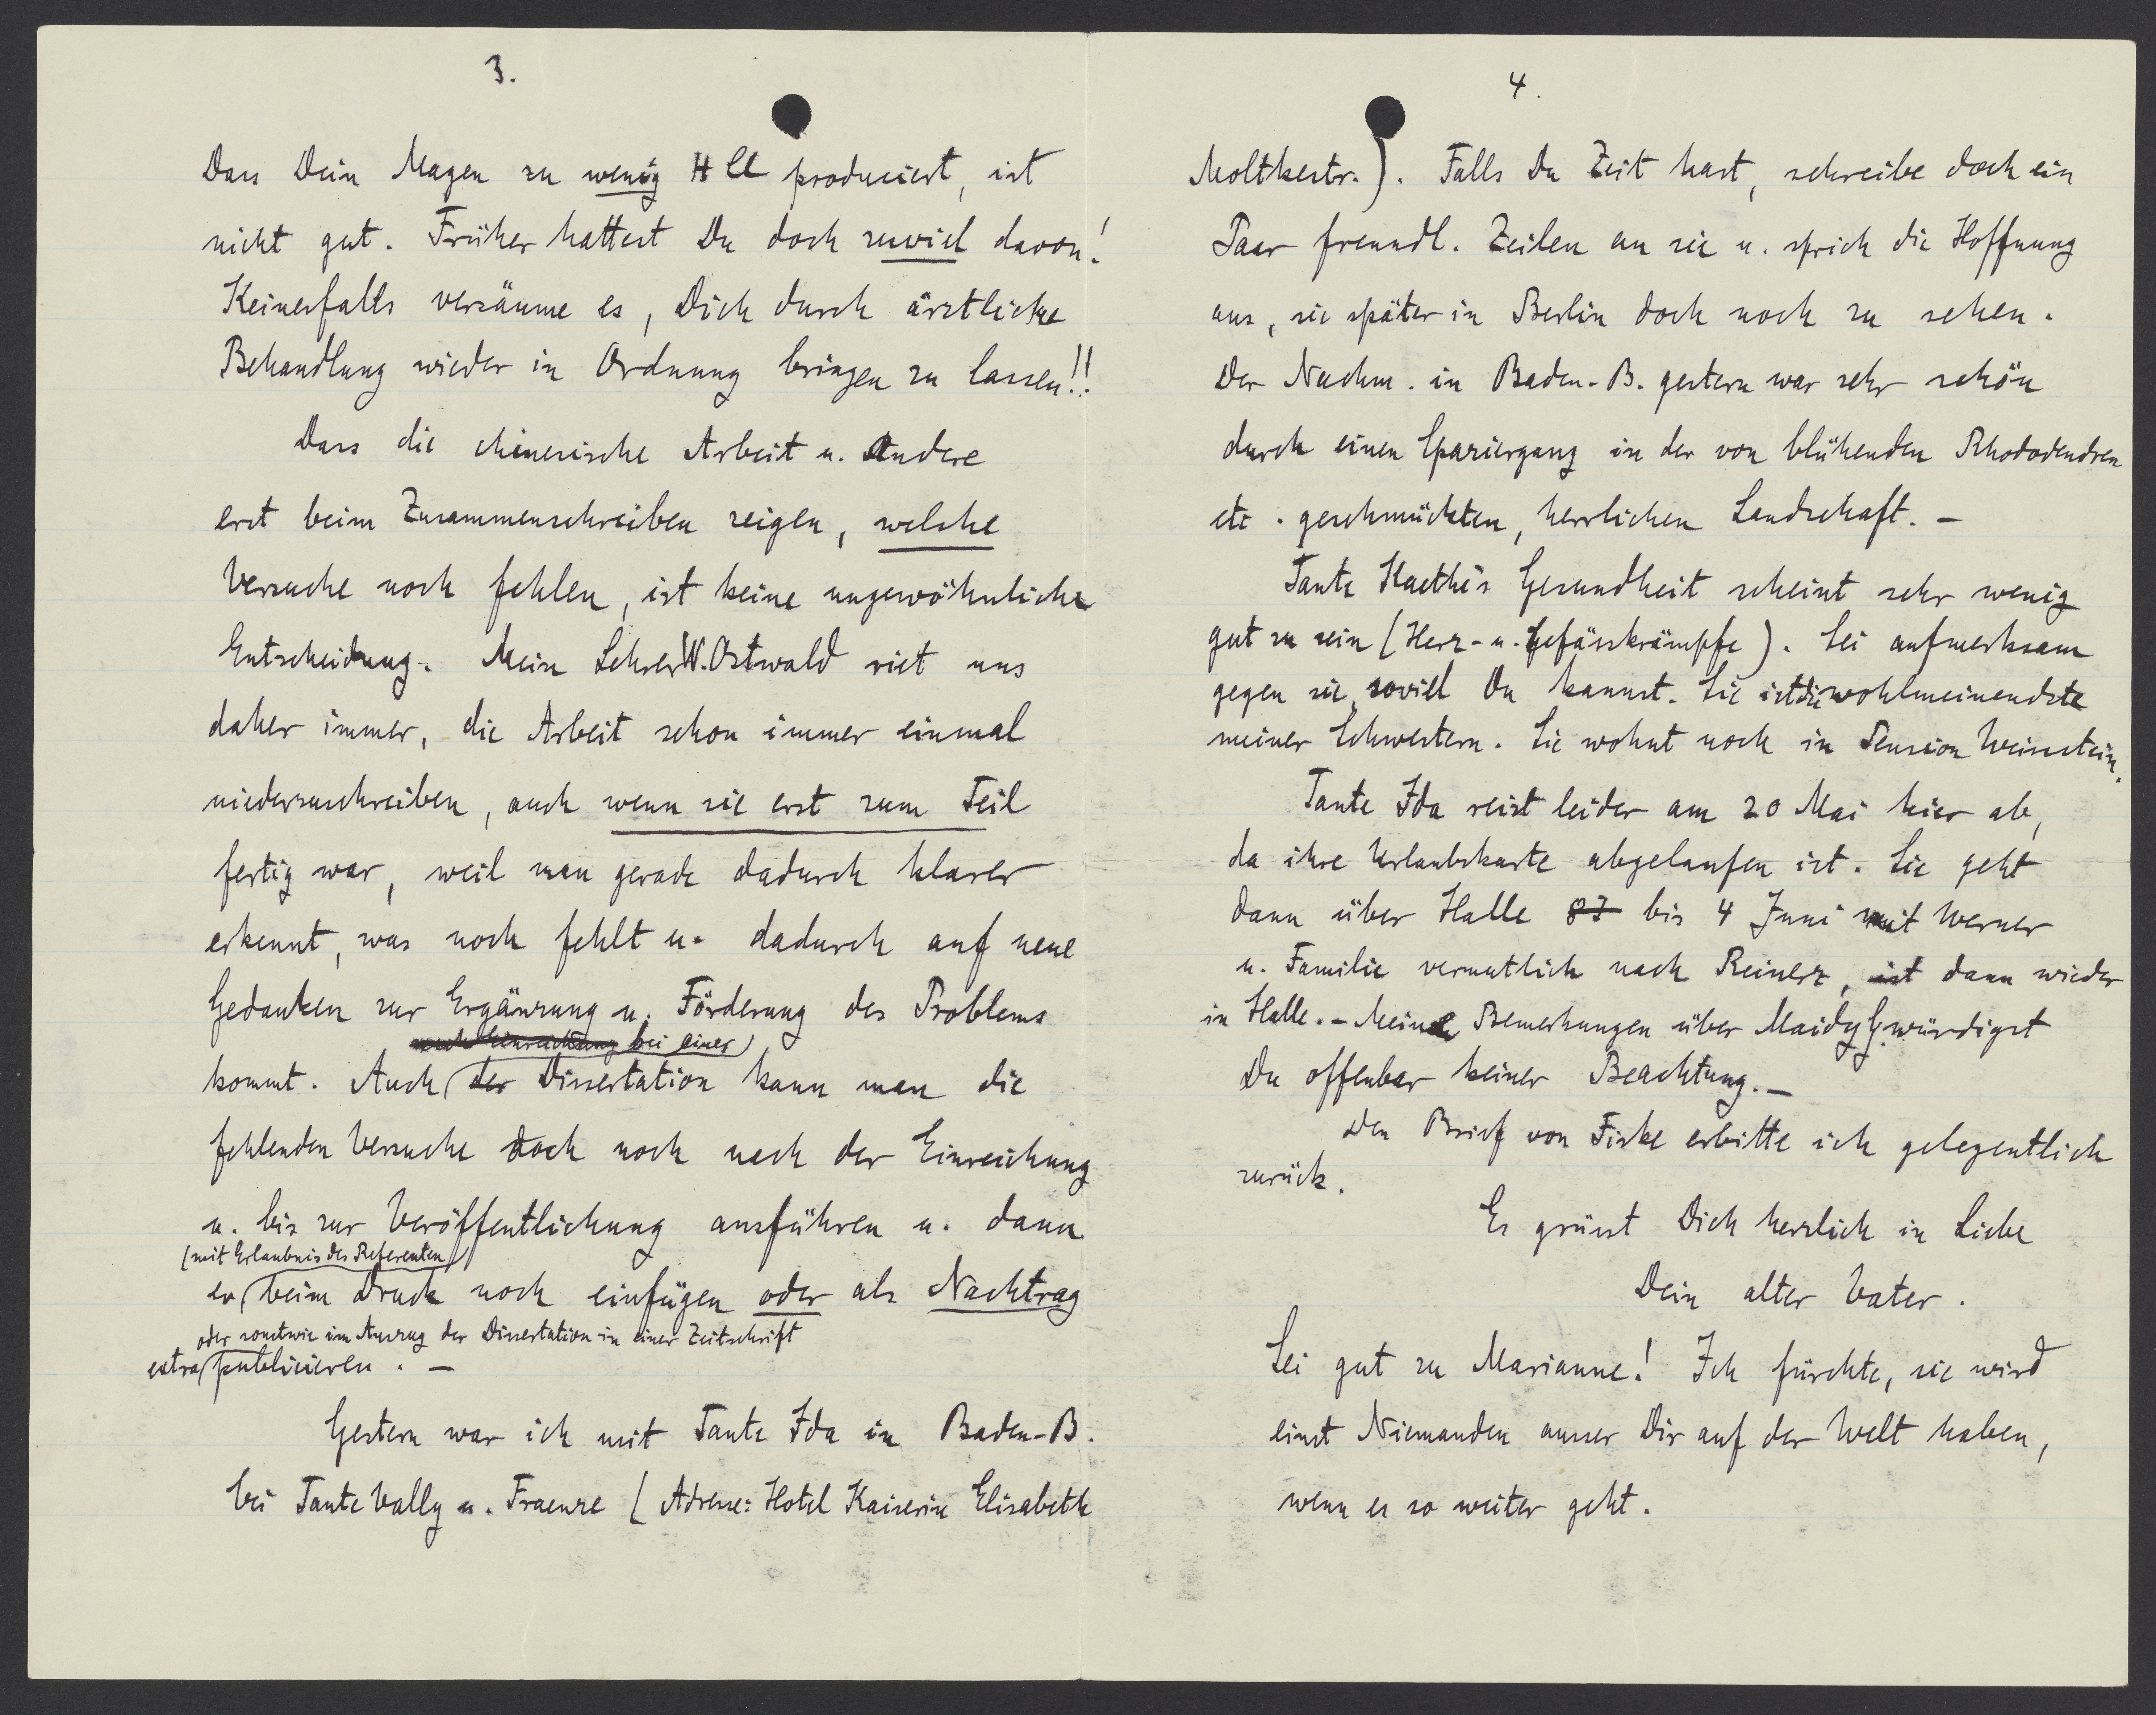 3.
Dass Dein Magen zu wenig HCl produciert, ist
nicht gut. Früher hattest Du doch zuviel davon!
Keinesfalls versäume es, Dich durch ärztliche
Behandlung wieder in Ordnung bringen zu lassen!!
Dass die chinesische Arbeit u. andere
erst beim Zusammenschreiben zeigen, welche
Versuche noch fehlen, ist keine ungewöhnliche
Entscheidung. Mein Lehrer W. Ostwald riet uns
daher immer, die Arbeit schon immer einmal
niederzuschreiben, auch wenn sie erst zum Teil
fertig war, weil man gerade dadurch klarer
erkennt, was noch fehlt u. dadurch auf neue
Gedanken zur Ergänzung u. Förderung des Problems
nach Einreichung bei einer
kommt. Auch der Dissertation kann man die
fehlenden Versuche doch noch nach der Einreichung
u. bis zur Veröffentlichung ausführen u. dann
(mit Erlaubnis des Referenten)
ev beim Druck noch einfügen oder als Nachtrag
oder sonstwie im Auszug der Dissertation in einer Zeitschrift
extra publicieren. —
Gestern war ich mit Tante Ida in Baden-B.
bei Tante Vally u. Fraenze (Adresse: Hotel Kaiserin Elisabeth
4.
Moltkestr.). Falls Du Zeit hast, schreibe doch ein
Paar freundl. Zeilen an sie u. sprich die Hoffnung
aus, sie später in Berlin doch noch zu sehen.
Der Nachm. in Baden-B. gestern war sehr schön
durch einen Spaziergang in der von blühenden Rhododendren
etc. geschmückten, herrlichen Landschaft. —
Tante Kaethe's Gesundheit scheint sehr wenig
gut zu sein (Herz- u. Gefässkrämpfe). Sei aufmerksam
gegen sie, soviel Du kannst. Sie ist die wohlmeinendste
meiner Schwestern. Sie wohnt noch in Pension Weissstein.
Tante Ida reist leider am 20 Mai hier ab,
da ihre Urlaubskarte abgelaufen ist. Sie geht
dann über Halle bis 4 Juni mit Werner
u. Familie vermutlich nach Reinerz, ist dann wieder
in Halle. — Meine Bemerkungen über Maidy G. würdigst
Du offenbar keiner Beachtung. —
Den Brief von Fiske erbitte ich gelegentlich
zurück.
Es grüsst Dich herzlich in Liebe
Dein alter Vater.
Sei gut zu Marianne! Ich fürchte, sie wird
einst Niemanden ausser Dir auf der Welt haben,
wenn es so weiter geht.